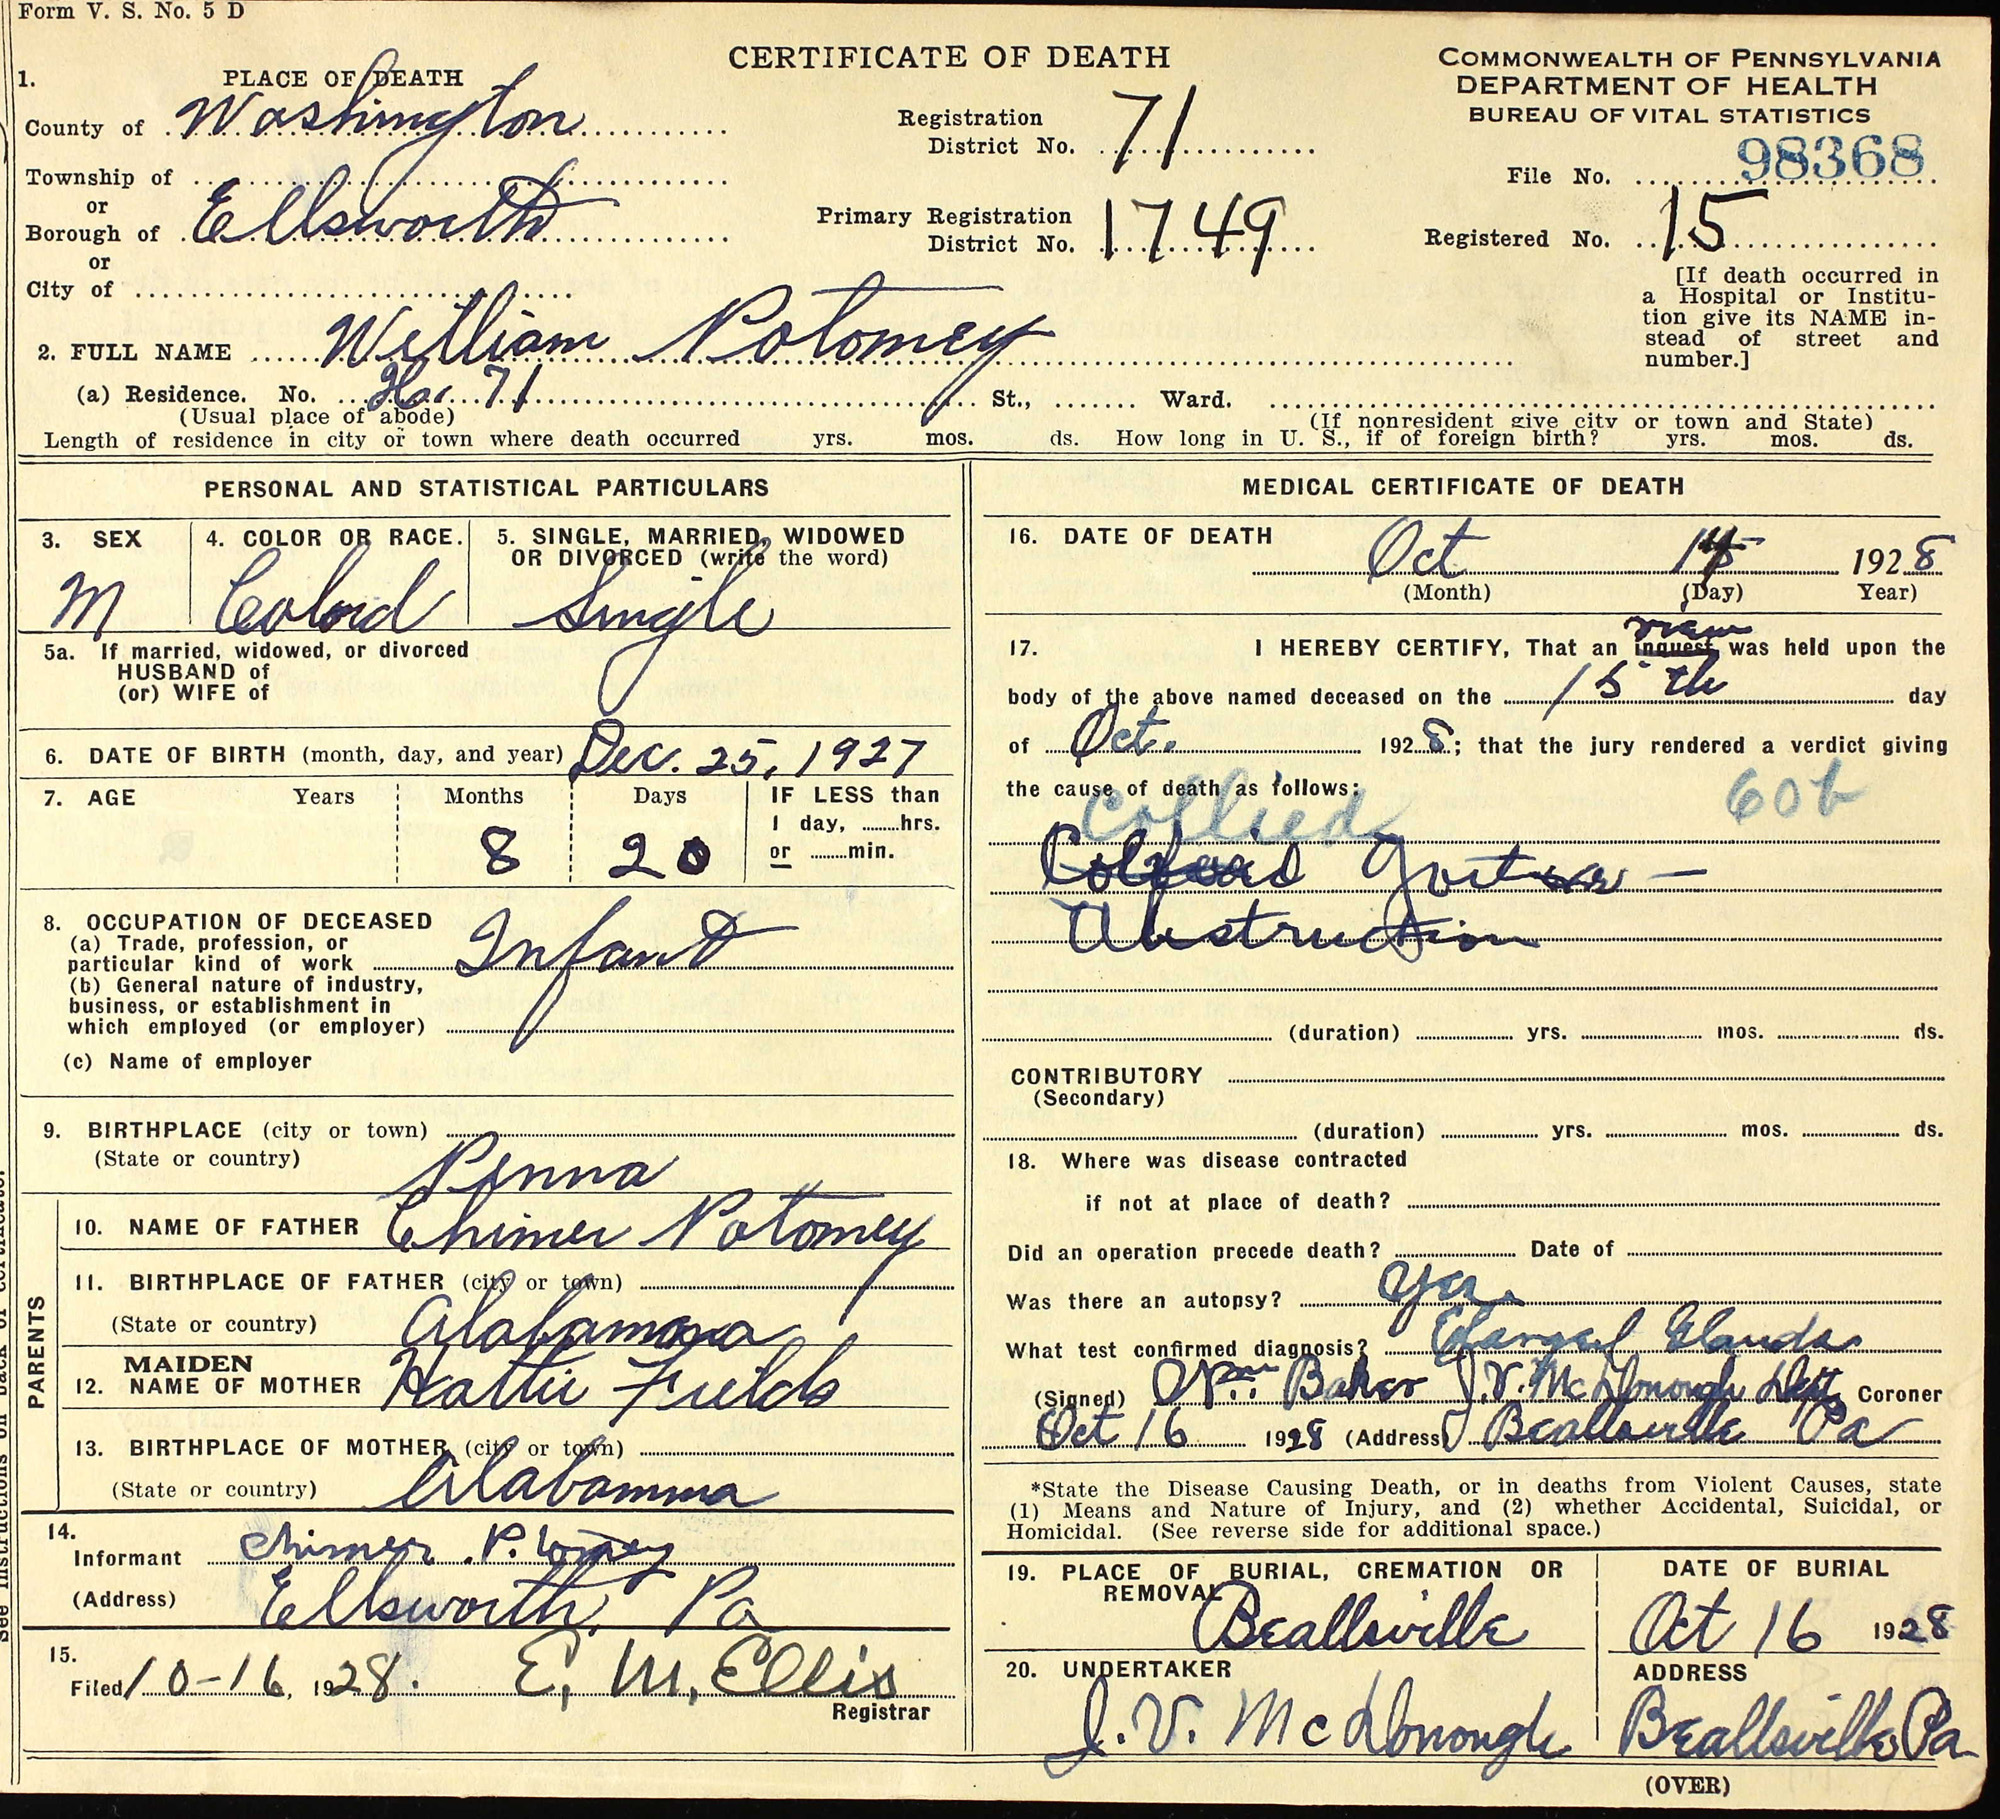 Form V. S. No. 5 D
CERTIFICATE OF DEATH
COMMONWEALTH OF PENNSYLVANIA
DEPARTMENT OF HEALTH
BUREAU OF VITAL STATISTICS
1. PLACE OF DEATH
County of Washington
Registration District No. 71
File No. 98368
Township of
or
Borough of Ellsworth
Primary Registration District No. 1749
Registered No. 15
or
City of
[If death occurred in
a Hospital or Institu-
tion give its NAME in-
stead of street and
number.]
2. FULL NAME William Potomey
(a) Residence. No. 71 St., Ward.
(Usual place of abode) (If nonresident give city or town and State)
Length of residence in city or town where death occurred yrs. mos. ds. How long in U. S., if of foreign birth? yrs. mos. ds.
PERSONAL AND STATISTICAL PARTICULARS
3. SEX 4. COLOR OR RACE. 5. SINGLE, MARRIED, WIDOWED
OR DIVORCED (write the word)
M Colord Single
5a. If married, widowed, or divorced
HUSBAND of
(or) WIFE of
6. DATE OF BIRTH (month, day, and year) Dec. 25, 1927
7. AGE Years Months Days IF LESS than
1 day, hrs.
8 20 or min.
8. OCCUPATION OF DECEASED
(a) Trade, profession, or
particular kind of work Infant
(b) General nature of industry,
business, or establishment in
which employed (or employer)
(c) Name of employer
9. BIRTHPLACE (city or town)
(State or country) Penna
PARENTS
10. NAME OF FATHER Chimer Potomey
11. BIRTHPLACE OF FATHER (city or town)
(State or country) Alabamma
MAIDEN
12. NAME OF MOTHER Hattie Fields
13. BIRTHPLACE OF MOTHER (city or town)
(State or country) Alabamma
14.
Informant Chimer
(Address) Ellsworth, Pa
15.
Filed 10-16, 1928. E. M. Ellis
Registrar
MEDICAL CERTIFICATE OF DEATH
16. DATE OF DEATH
Oct 14 1928
(Month) (Day) Year)
17. I HEREBY CERTIFY, That an inquest view was held upon the
body of the above named deceased on the 15th day
of Oct. 1928; that the jury rendered a verdict giving
the cause of death as follows:
Collied 60b
Goitre —
Abstruction
(duration) yrs. mos. ds.
CONTRIBUTORY
(Secondary)
(duration) yrs. mos. ds.
18. Where was disease contracted
if not at place of death?
Did an operation precede death? Date of
Was there an autopsy? Yes.
What test confirmed diagnosis? Glands
(Signed) Wm Baker J. V. McDonough Dept Coroner
Oct 16 1928 (Address) Beallsville Pa
*State the Disease Causing Death, or in deaths from Violent Causes, state
(1) Means and Nature of Injury, and (2) whether Accidental, Suicidal, or
Homicidal. (See reverse side for additional space.)
19. PLACE OF BURIAL, CREMATION OR
REMOVAL
Beallsville
DATE OF BURIAL
Oct 16 1928
20. UNDERTAKER
J. V. McDonough
ADDRESS
Beallsville Pa
(OVER)
See instructions on back of certificate.